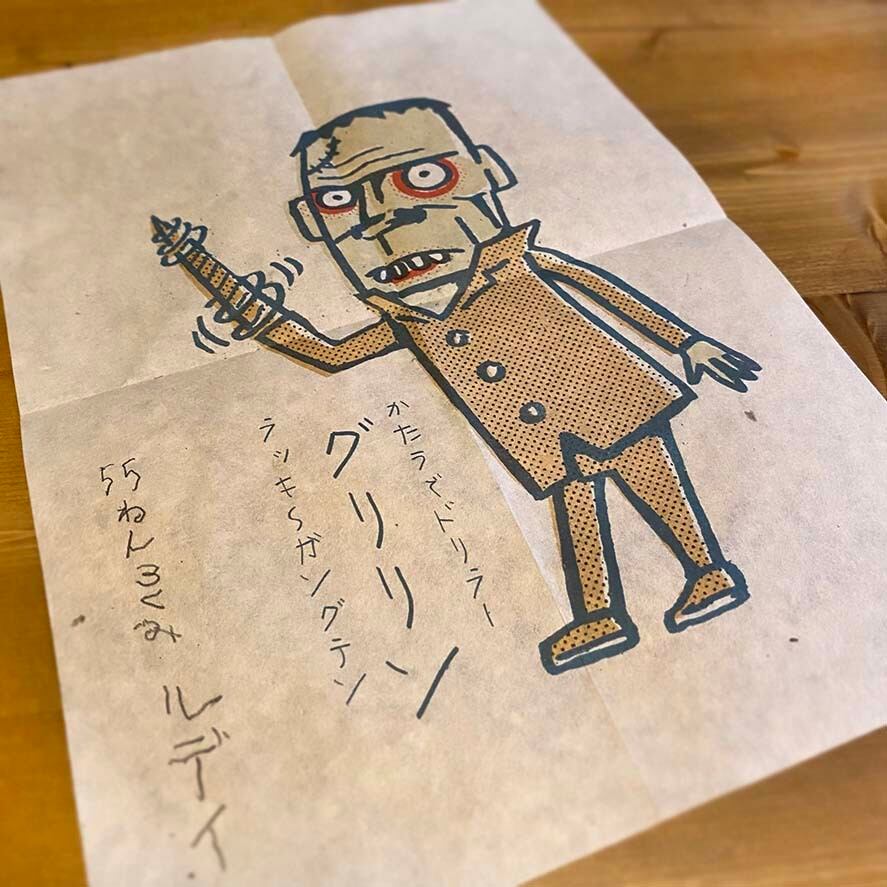 かたうでドリラー
グリリン
ラッキーガングテン
55ねん3くみ
ルディ